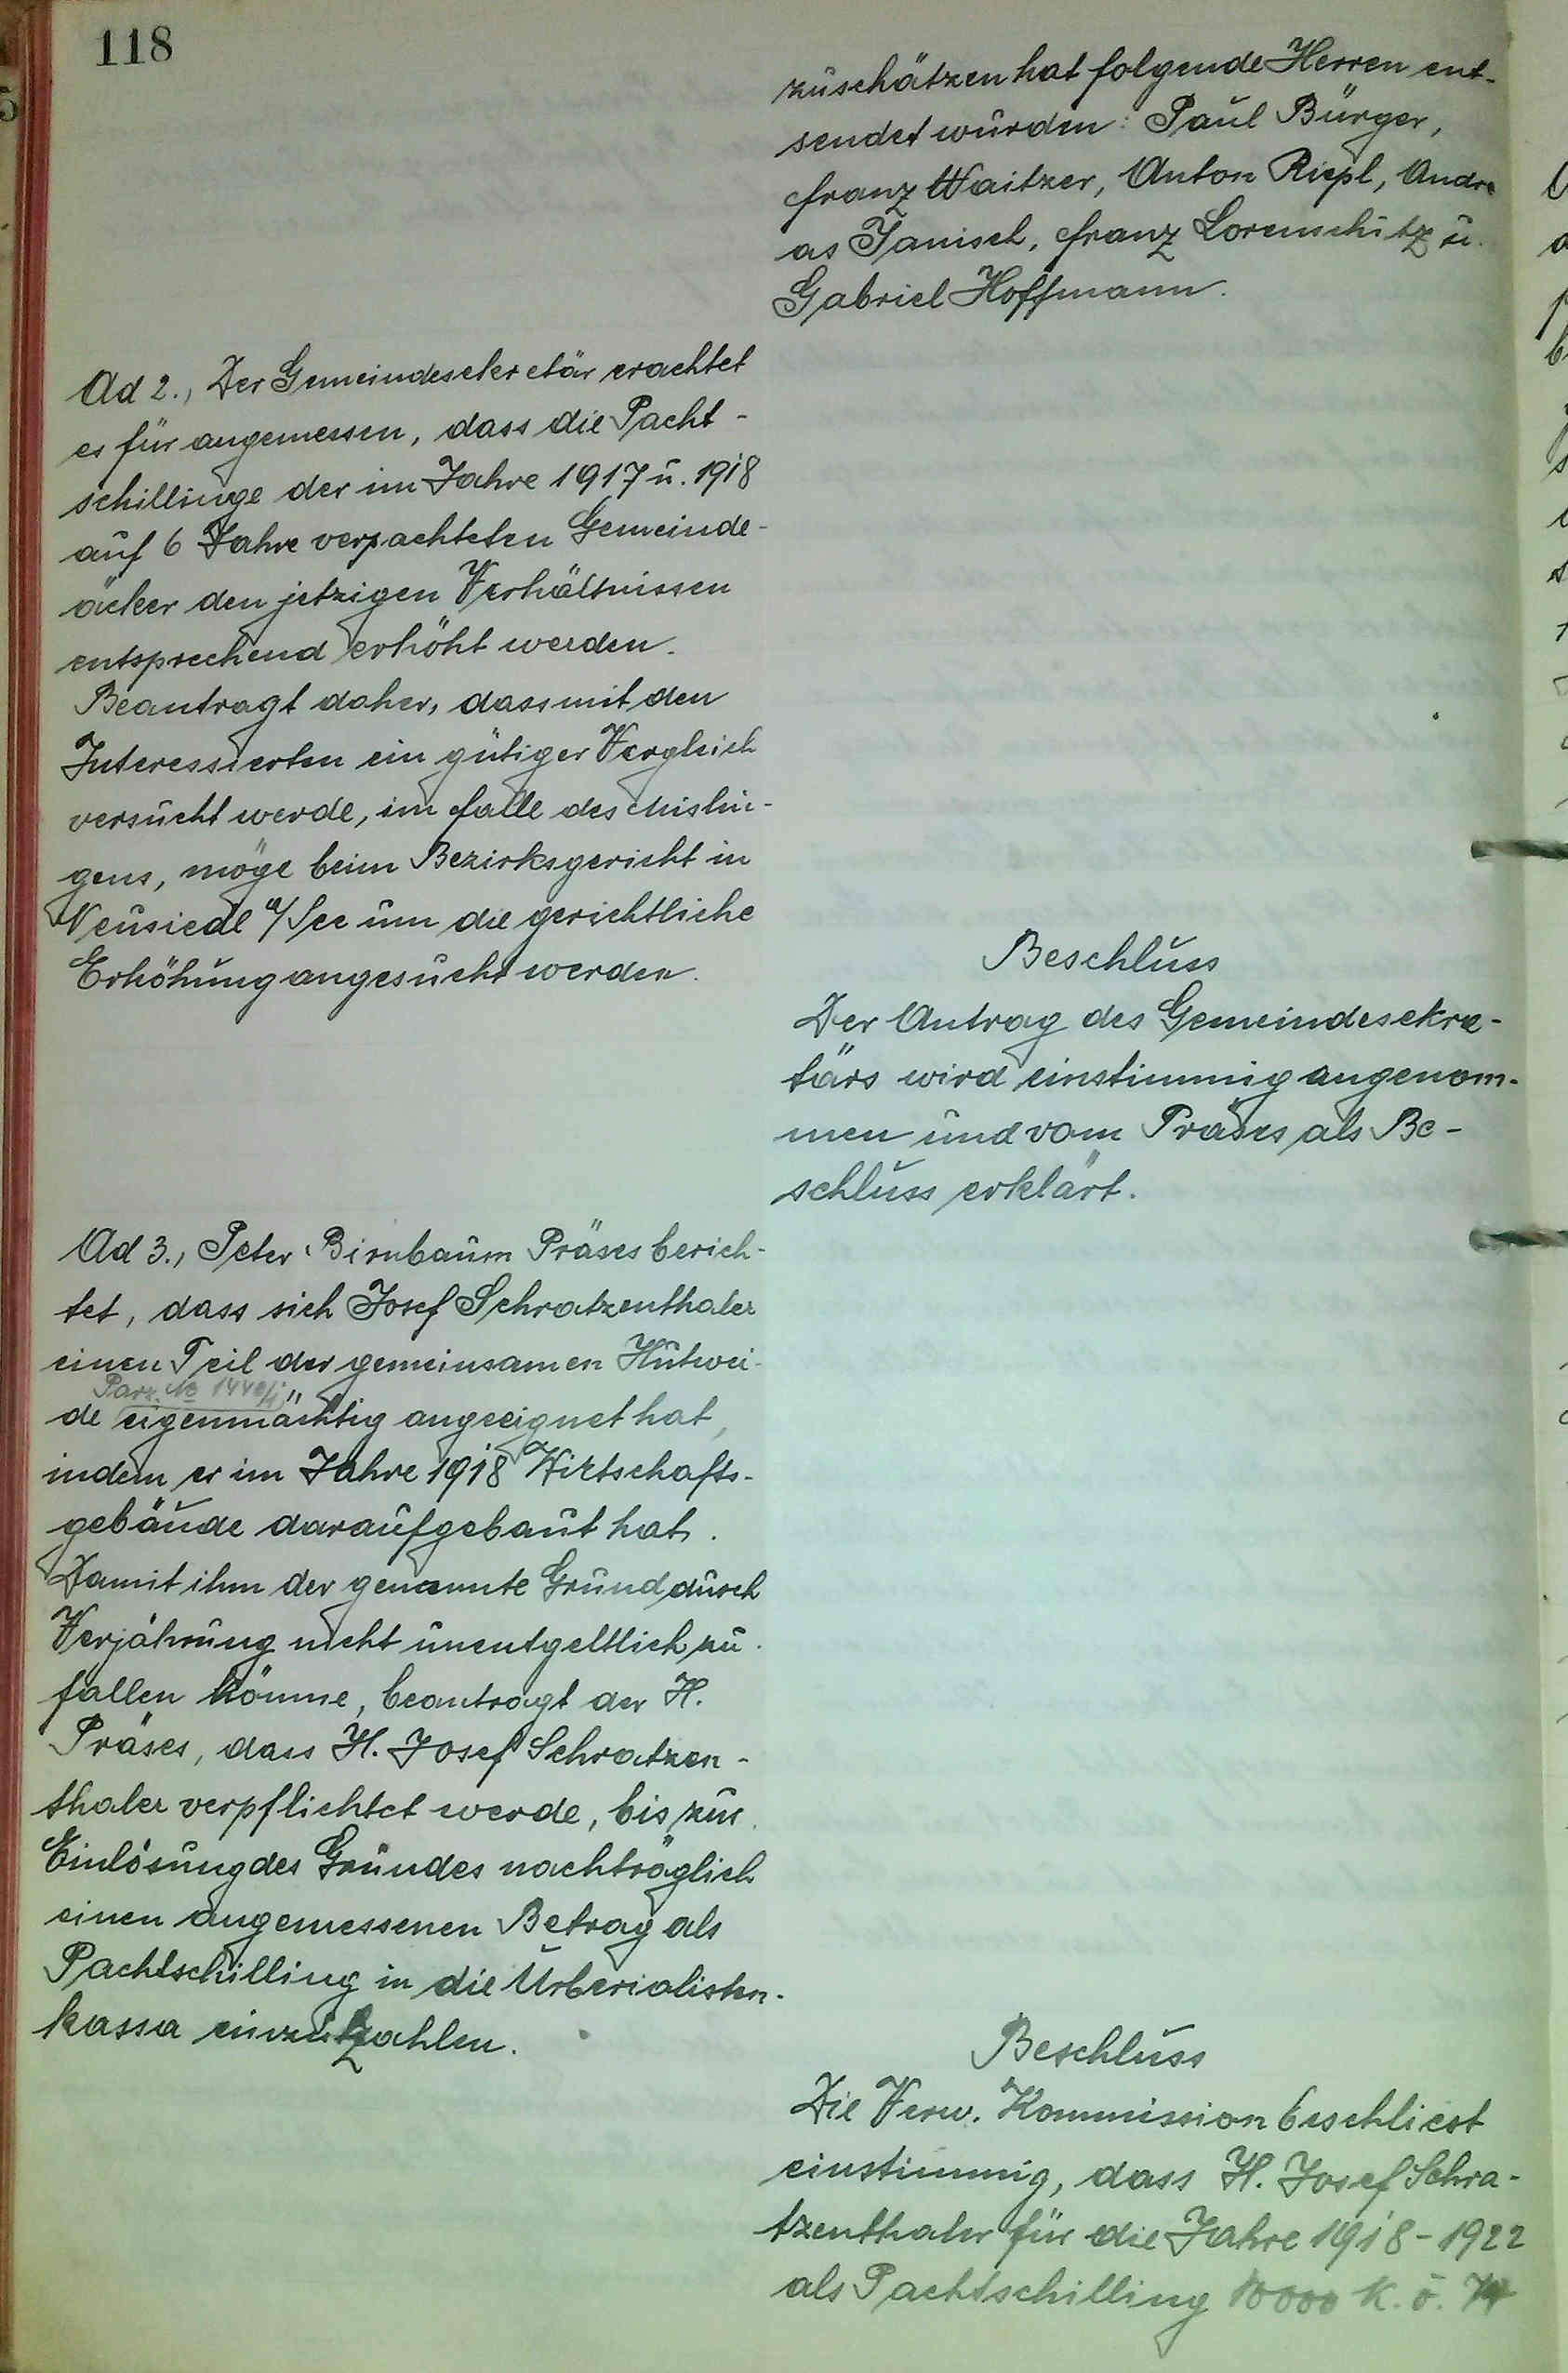 118
zuschätzen hat folgende Herren ent-
sendet wurden: Paul Bürger,
Franz Waitzer, Anton Riepl, Andre
as Janisch, Franz Lorenschitz u.
Gabriel Hoffmann.
Ad 2., Der Gemeindesekretär erachtet
es für angemessen, dass die Pacht-
schillinge der im Jahre 1917 u. 1918
auf 6 Jahre verpachteten Gemeinde-
äcker den jetzigen Verhältnissen
entsprechend erhöht werden.
Beantragt daher, dass mit den
Interessierten ein gütiger Vergleich
versucht werde, im Falle des Mislin-
gens, möge beim Bezirksgericht in
Neusiedl a/See um die gerichtliche
Erhöhung angesucht werden.
Beschluss
Der Antrag des Gemeindesekre-
tärs wird einstimmig angenom-
men und vom Präses als Be-
schluss erklärt.
Ad 3., Peter Birnbaum Präses berich-
tet, dass sich Josef Schratzenthaler
einen Teil der gemeinsamen Hutwei-
Parz. No
de eigenmächtig angeeignet hat,
indem er im Jahre 1918 Wirtschafts-
gebäude daraufgebaut hat.
Damit ihm der genannte Grund durch
Verjährung nicht unentgeltlich zu-
fallen könne, beantragt der H.
Präses, dass H. Josef Schratzen-
thaler verpflichtet werde, bis zur
Einlösung des Grundes nachträglich
einen angemessenen Betrag als
Pachtschilling in die Urberialisten-
kassa einzuzahlen.
Beschluss
Die Verw. Kommission beschliest
einstimmig, dass H. Josef Schra-
tzenthaler für die Jahre 1918-1922
als Pachtschilling 10000 K. ö.